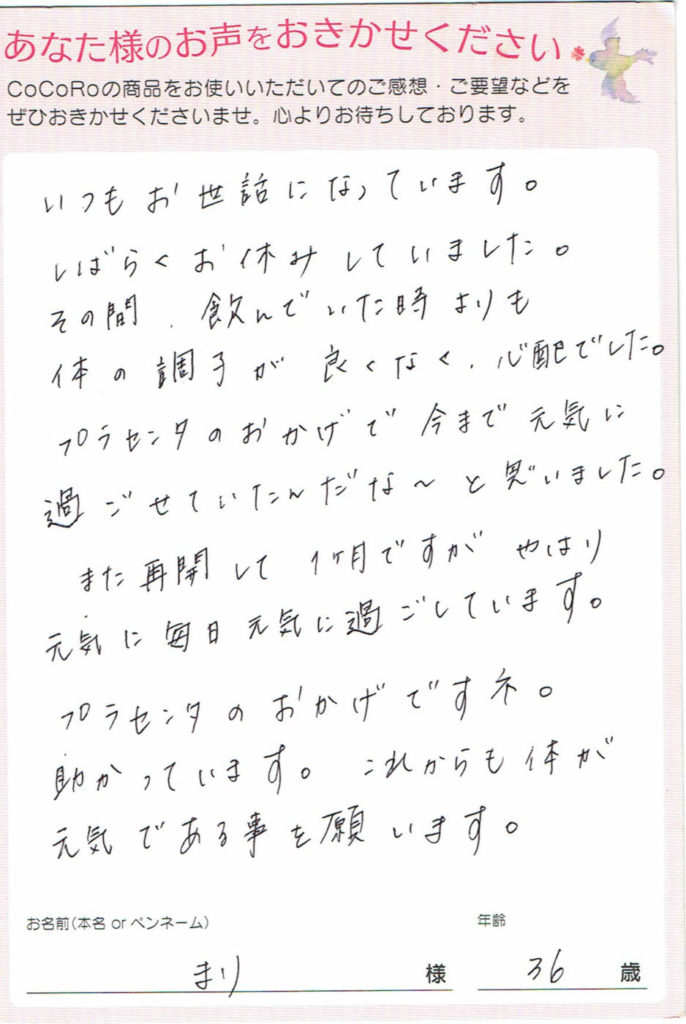 あなた様のお声をおきかせください
CoCoRoの商品をお使いいただいてのご感想・ご要望などを
ぜひおきかせくださいませ。心よりお待ちしております。
いつもお世話になっています。
しばらくお休みしていました。
その間、飲んでいた時よりも
体の調子が良くなく、心配でした。
プラセンタのおかげで今まで元気に
過ごせていたんだな〜と思いました。
また再開して1ヶ月ですがやはり
元気に毎日元気に過ごしています。
プラセンタのおかげですネ。
助かっています。これからも体が
元気である事を願います。
お名前(本名 or ペンネーム)
年齢
まり 様 36 歳